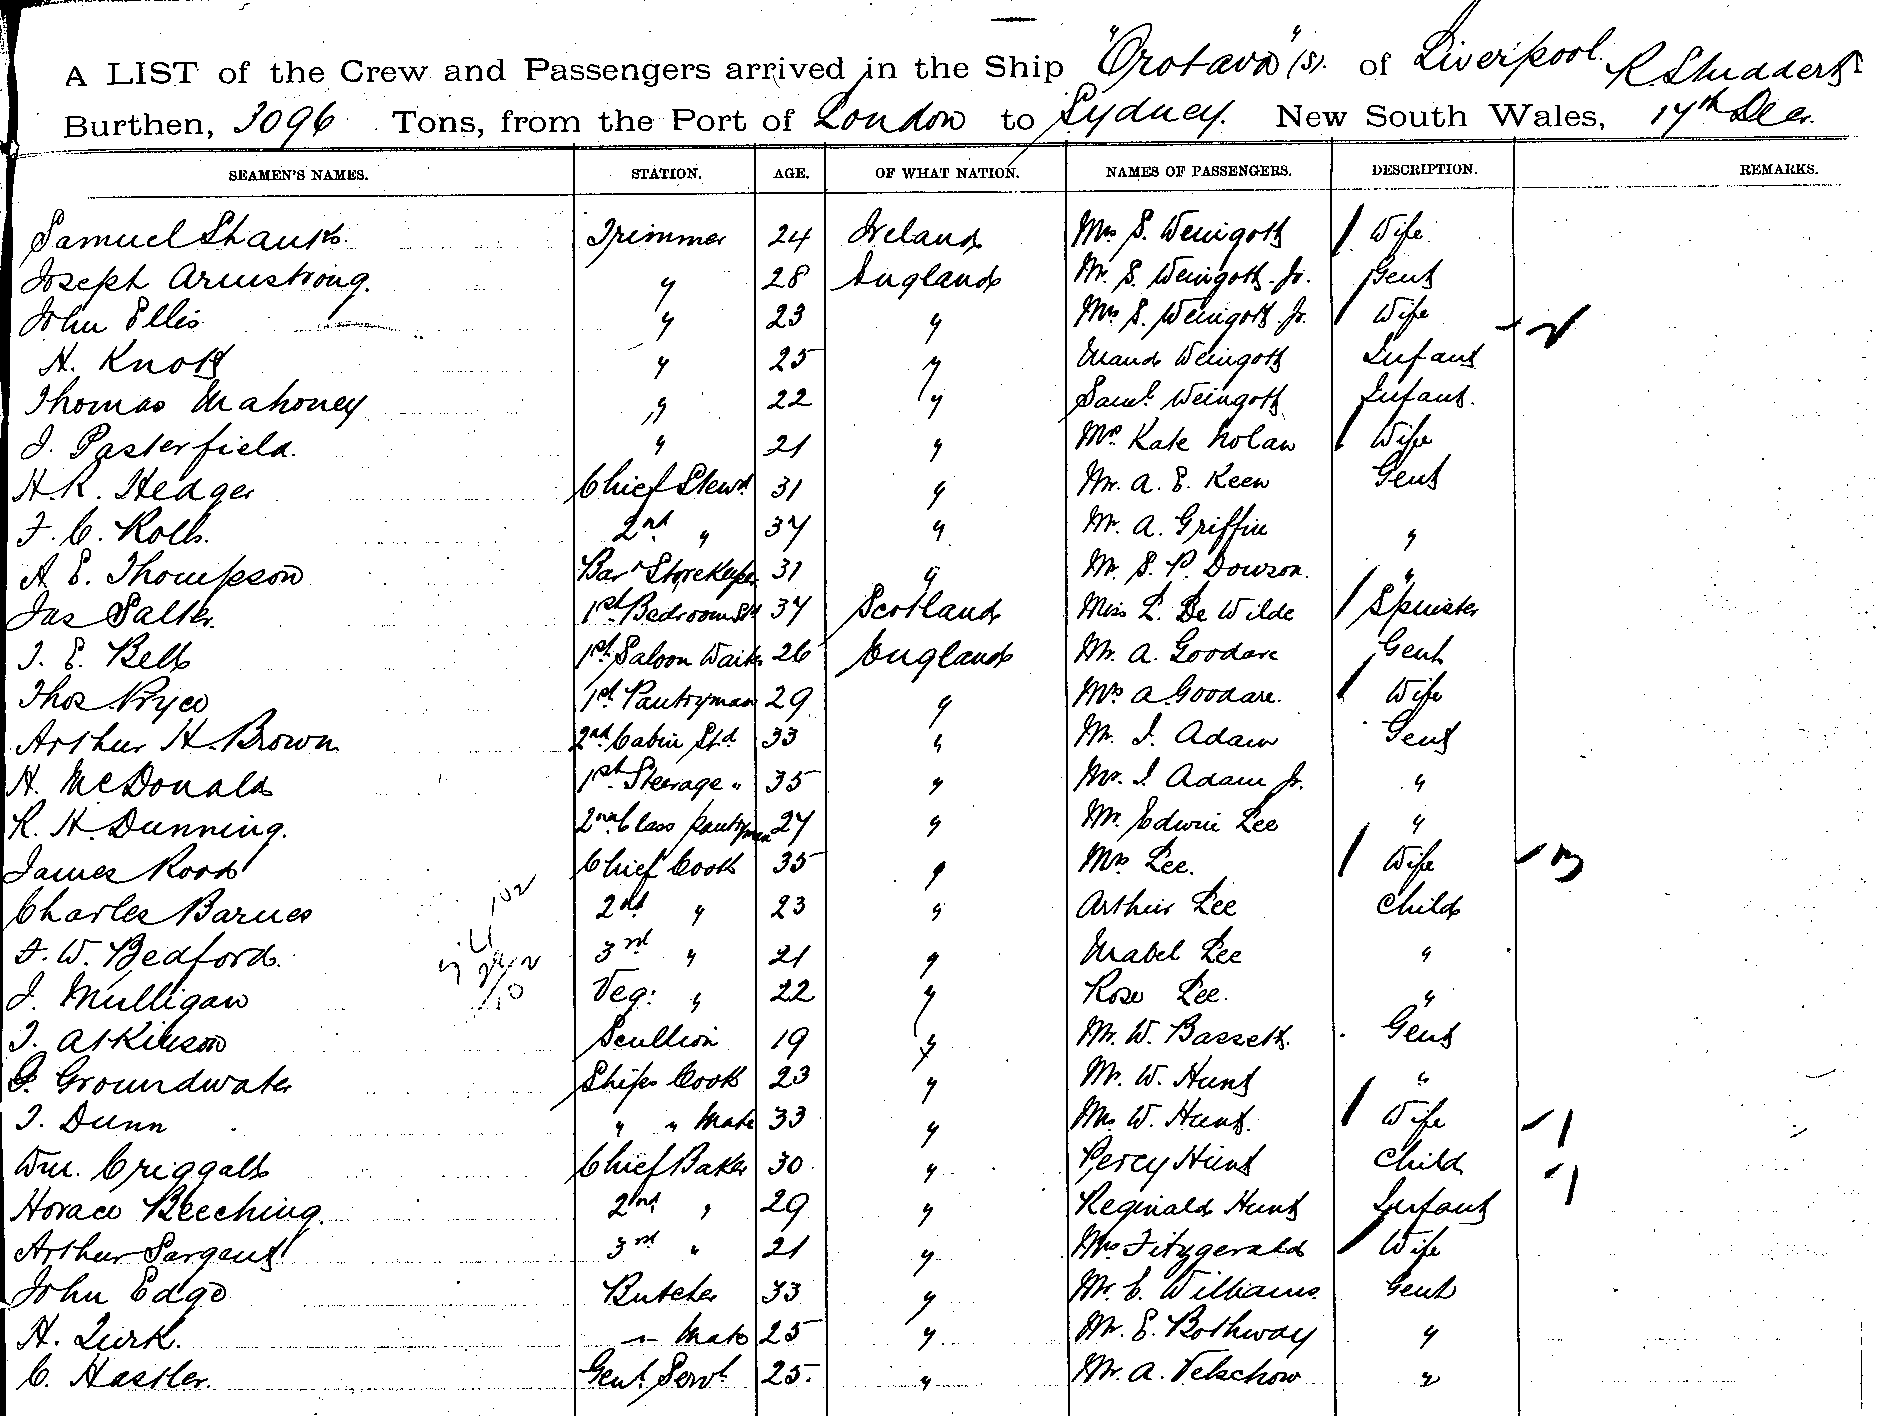 A LIST of the Crew and Passengers arrived in the Ship "Orotava" (s). of Liverpool. R. Studdert
Burthen, 3096 Tons, from the Port of London to Sydney. New South Wales, 17th Decr.
SEAMEN'S NAMES. STATION. AGE. OF WHAT NATION. NAMES OF PASSENGERS. DESCRIPTION. REMARKS.
Samuel Shanks. Trimmer 24 Ireland Mrs S. Weingott Wife
Joseph Armstrong. " 28 England Mr. S. Weingott Jr. Gent
John Ellis " 23 " Mrs S. Weingott Jr. Wife 2
H. Knott " 25 " Maud Weingott Infant
Thomas Mahoney " 22 " Saml. Weingott Infant.
J. Pasterfield. " 21 " Mrs Kate Nolan Wife
H R. Hedger Chief Stewd 31 " Mr. A. E. Keen Gent
F. C. Rolls. 2nd " 37 " Mr. A. Griffin "
A. E. Thompson Bar Storekeeper 31 " Mr. S. P. Dowson. "
Jas Salter. 1st Bedroom Std 37 Scotland Miss L. De Wilde Spinster
T. E. Bell 1st Saloon Waiter 26 England Mr. A. Goodare Gent
Thos Pryce 1st Pantryman 29 " Mrs A. Goodare. Wife
Arthur H. Brown 2nd Cabin Std 33 " Mr. I. Adam Gent
H. McDonald 1st Steerage " 35 " Mr. I. Adam Jr. "
R. H. Dunning. 2nd Class Pantryman 27 " Mr. Edwin Lee "
James Rood Chief Cook 35 " Mrs Lee. Wife 3
Charles Barnes 2nd " 23 " Arthur Lee Child
F. W. Bedford. 3rd " 21 " Mabel Lee "
J. Mulligan Veg: " 22 " Rose Lee. "
T. Atkinson Scullion 19 " Mr. W. Bassett. Gent
G. Groundwater Ships Cook 23 " Mr. W. Hunt "
T. Dunn " " Mate 33 " Mrs W. Hunt. Wife 1
Wm. Criggall Chief Baker 30 " Percy Hunt Child 1
Horace Beeching. 2nd " 29 " Reginald Hunt Infant
Arthur Sargent 3rd " 21 " Mrs Fitzgerald Wife
John Edge Butcher 33 " Mr. C. Williams. Gent
H. Quirk. " Mate 25 " Mr. E. Bothway "
C. Hastler. Genl. Servt. 25. " Mr. A. Velschow "